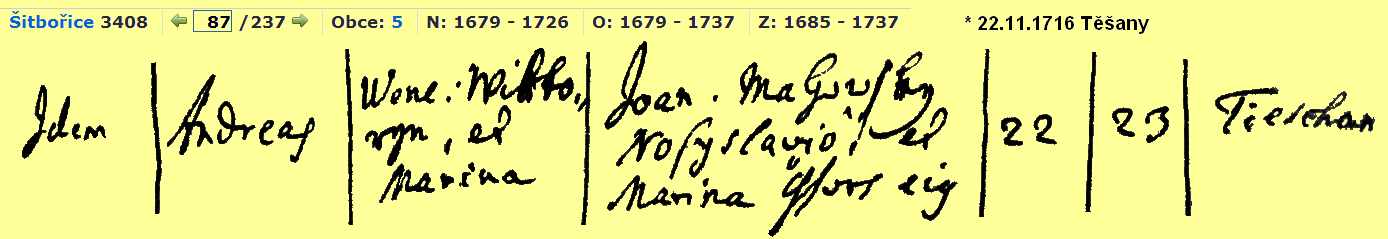 Šitbořice 3408 87 /237 Obce: 5 N: 1679 - 1726 O: 1679 - 1737 Z: 1685 - 1737 * 22.11.1716 Těšany
Idem
Andreas
Wene. Wikto,,
ryn, et
Marina
Joan.
et
Marina
22
23
Tieschan